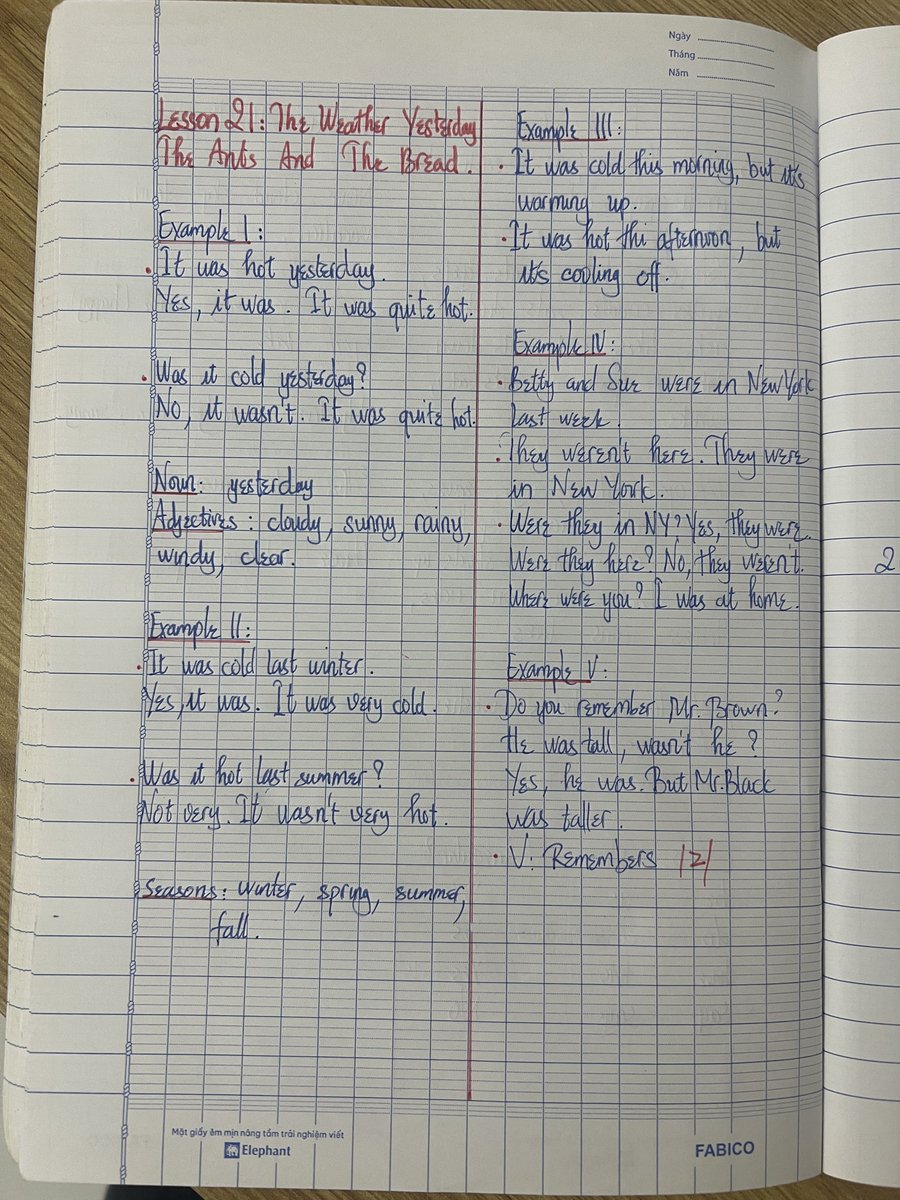 Ngày
Tháng
Năm
Lesson 21: The Weather Yesterday
The Ants And The Bread.
Example I:
. It was hot yesterday.
Yes, it was. It was quite hot.
. Was it cold yesterday?
No, it wasn't. It was quite hot.
Noun: yesterday
Adjectives: cloudy, sunny, rainy,
windy, clear.
Example II:
. It was cold last winter.
Yes, it was. It was very cold.
. Was it hot last summer?
Not very. It wasn't very hot.
Seasons: winter, spring, summer,
fall.
Example III:
. It was cold this morning, but it's
warming up.
. It was hot thi afternoon, but
it's cooling off.
Example IV:
. Betty and Sue were in New York
last week.
. They weren't here. They were
in New York.
. Were they in NY? Yes, they were.
Were they here? No, they weren't.
Where were you? I was at home.
Example V:
. Do you remember Mr. Brown?
He was tall, wasn't he?
Yes, he was. But Mr. Black
was taller.
. V: Remembers /z/
2
Mặt giấy êm mịn nâng tầm trải nghiệm viết
Elephant
FABICO